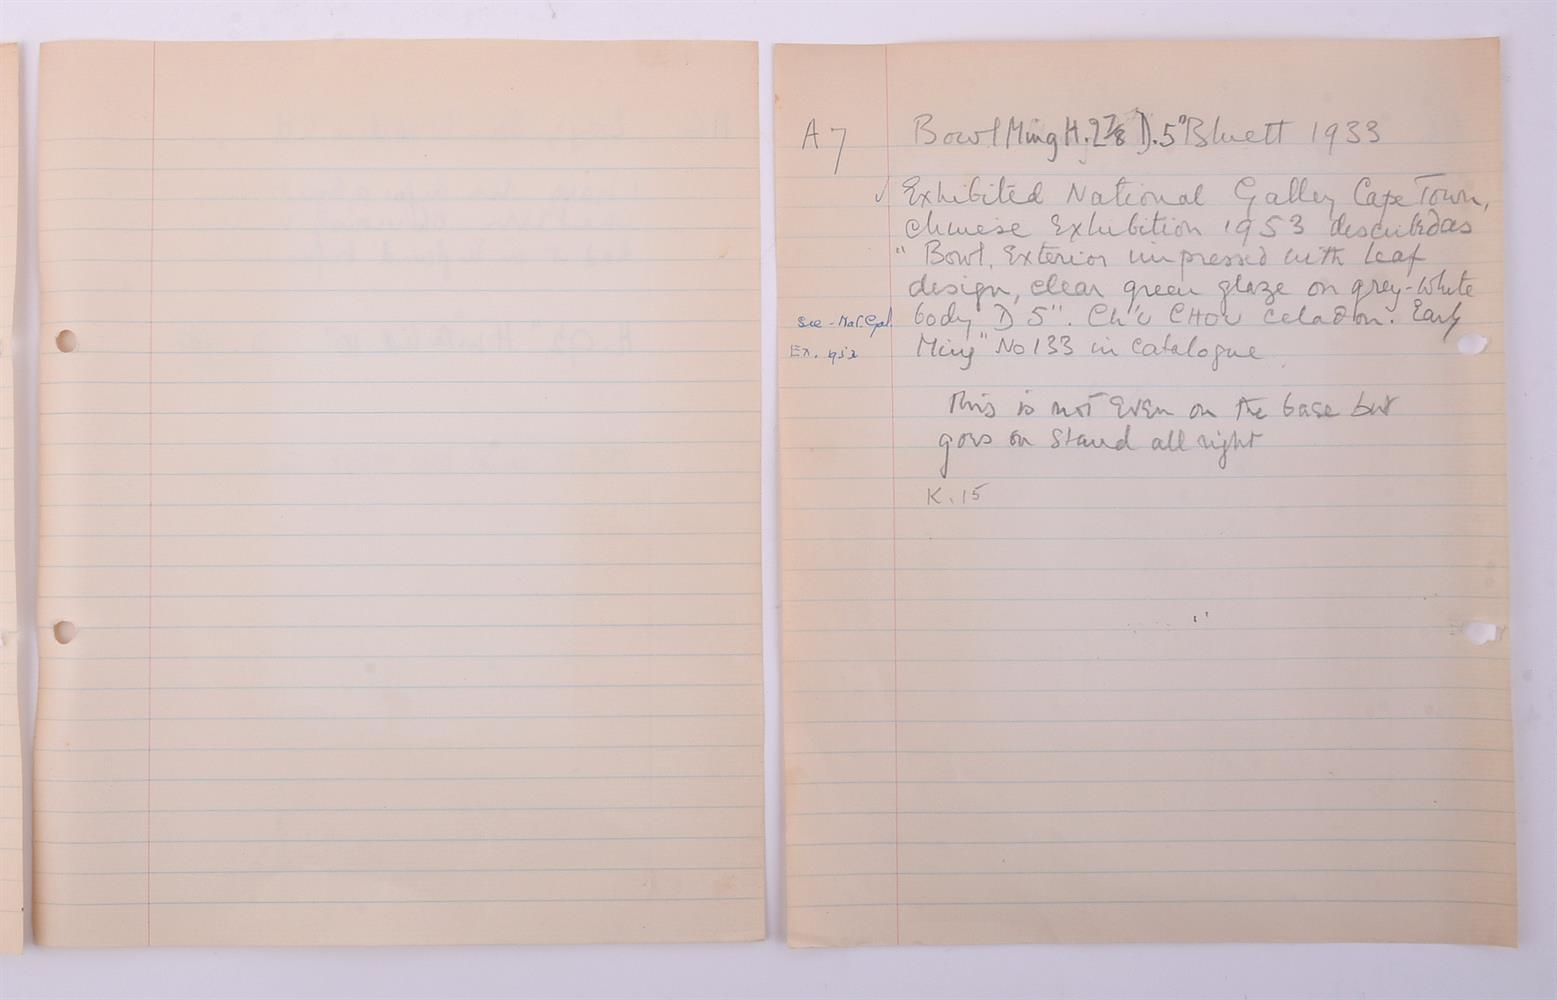 A7 Bowl Ming H. 2 7/8 D. 5" Bluett 1933
✓ Exhibited National Galley Cape Town,
Chinese Exhibition 1953 described as
" Bowl, Exterior impressed with leaf
design, clear green glaze on grey-white
See - Nat. Gal. body D 5". Ch'u CHOU Celadon. Early
Ex. 1953 Ming" No 133 in Catalogue
This is not Even on the base but
goes on stand all right
K. 15